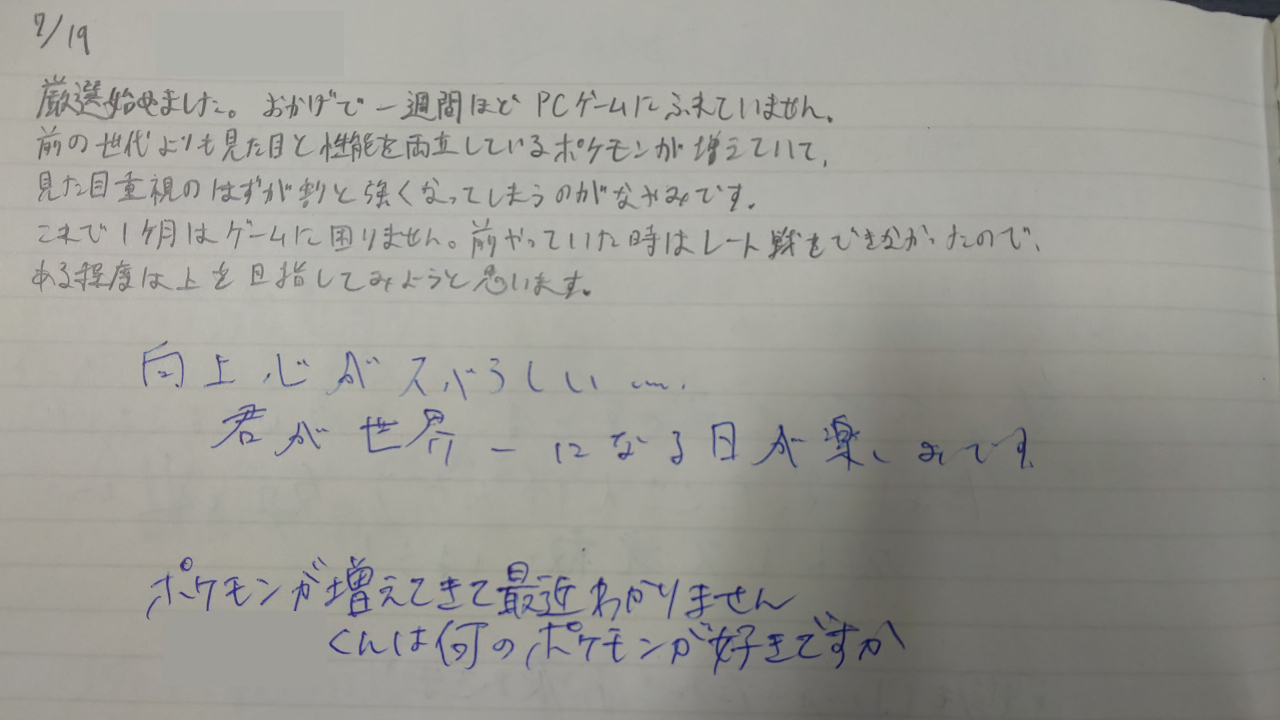 7/19
厳選始めました。おかげで一週間ほどPCゲームにふれていません。
前の世代よりも見た目と性能を両立しているポケモンが増えていて、
見た目重視のはずが割と強くなってしまうのがなやみです。
これで1ヶ月はゲームに困りません。前やっていた時はレート戦をできなかったので、
ある程度は上を目指してみようと思います。
向上心がスバらしい…。
君が世界一になる日が楽しみです
ポケモンが増えてきて最近わかりません
くんは何のポケモンが好きですか